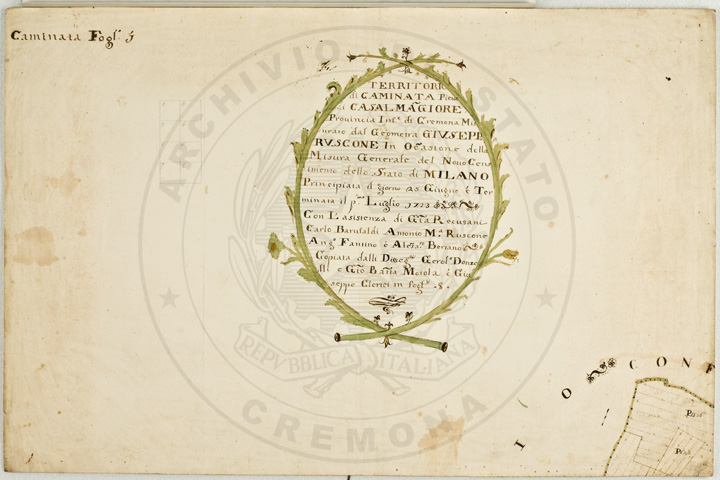 Caminata Fogl. 5
TERRITORIO
di CAMINATA Pieve
di CASAL MAGIORE
Provincia Inf. di Cremona Mi
surato dal Geometra GIUSEPE
RUSCONE In Ocasione della
Misura Generale del Novo Cen
simento dello Stato di MILANO
Principiata il giorno 28 Giugno è Ter
minata il p. Luglio 1723
Con L'asistenza di Gio. Rocusani
Carlo Barufaldi Antonio M. Ruscone
Ang. Fantino è Alesa. Boriano
Copiata dalli Diseg. Gerol. Donze
lli e Gio Batta Moiola è Giu
seppe Clerici in fogl. 8.
I O CONF
ARCHIVIO DI STATO
REPVBBLICA ITALIANA
CREMONA